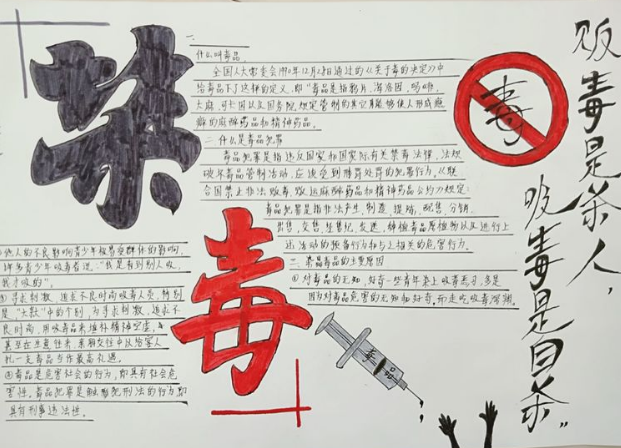 禁
毒
一、
什么叫毒品
全国人大常委会1990年12月28日通过的《关于禁毒的决定》中
给毒品下了这样的定义,即"毒品是指鸦片、海洛因、吗啡、
大麻、可卡因以及国务院规定管制的其它能够使人形成瘾
癖的麻醉药品和精神药品。
二、什么是毒品犯罪
毒品犯罪是指违反国家和国际有关禁毒法律、法规
破坏毒品管制活动,应该受到刑罚处罚的犯罪行为,《联
合国禁止非法贩毒,致运麻醉药品和精神药品公约》规定:
毒品犯罪是指非法生产、制造、提炼、配售、分销、
出售、交售、
植毒品原植物以及进行上
述活动的预备行为和与之相关的危害行为。
三、
毒品的主要原因
①对毒品的无知、好奇一些青年染上吸毒恶习,多是
因为对毒品危害的无知和好奇,而走吃吸毒深渊
②他人的不良影响青少年极易受群体的影响,
许多青少年吸毒者说:"我是看到别人吸,
我才吸的"。
③寻求刺激,追求不良时尚吸毒人员,特别
是"大款"中的个别,为寻求刺激,追求不
良时尚,用吸毒品来填补精神空虚,
甚至在生意往来,亲朋交往中以给客人
扎一支毒品当作最高礼遇。
④毒品是危害社会的行为,即具有社会危
害性。毒品犯罪是触犯刑法的行为即
具有刑事违法性。
毒
毒品
贩毒是杀人,
吸毒是自杀。